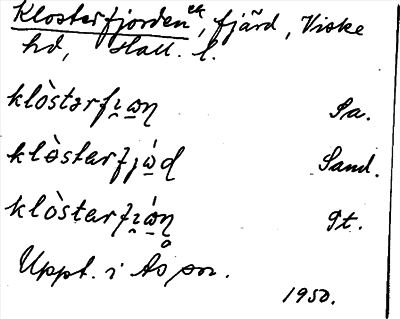 Klosterfjorden, fjärd, Viske
hd, Hall. l.
klòstərfi̯ɷn Sa.
klòstərfjɷ́d Sand.
klòstərfi̯ɷ́n Pt.
Uppt. i Ås sn.
1950.